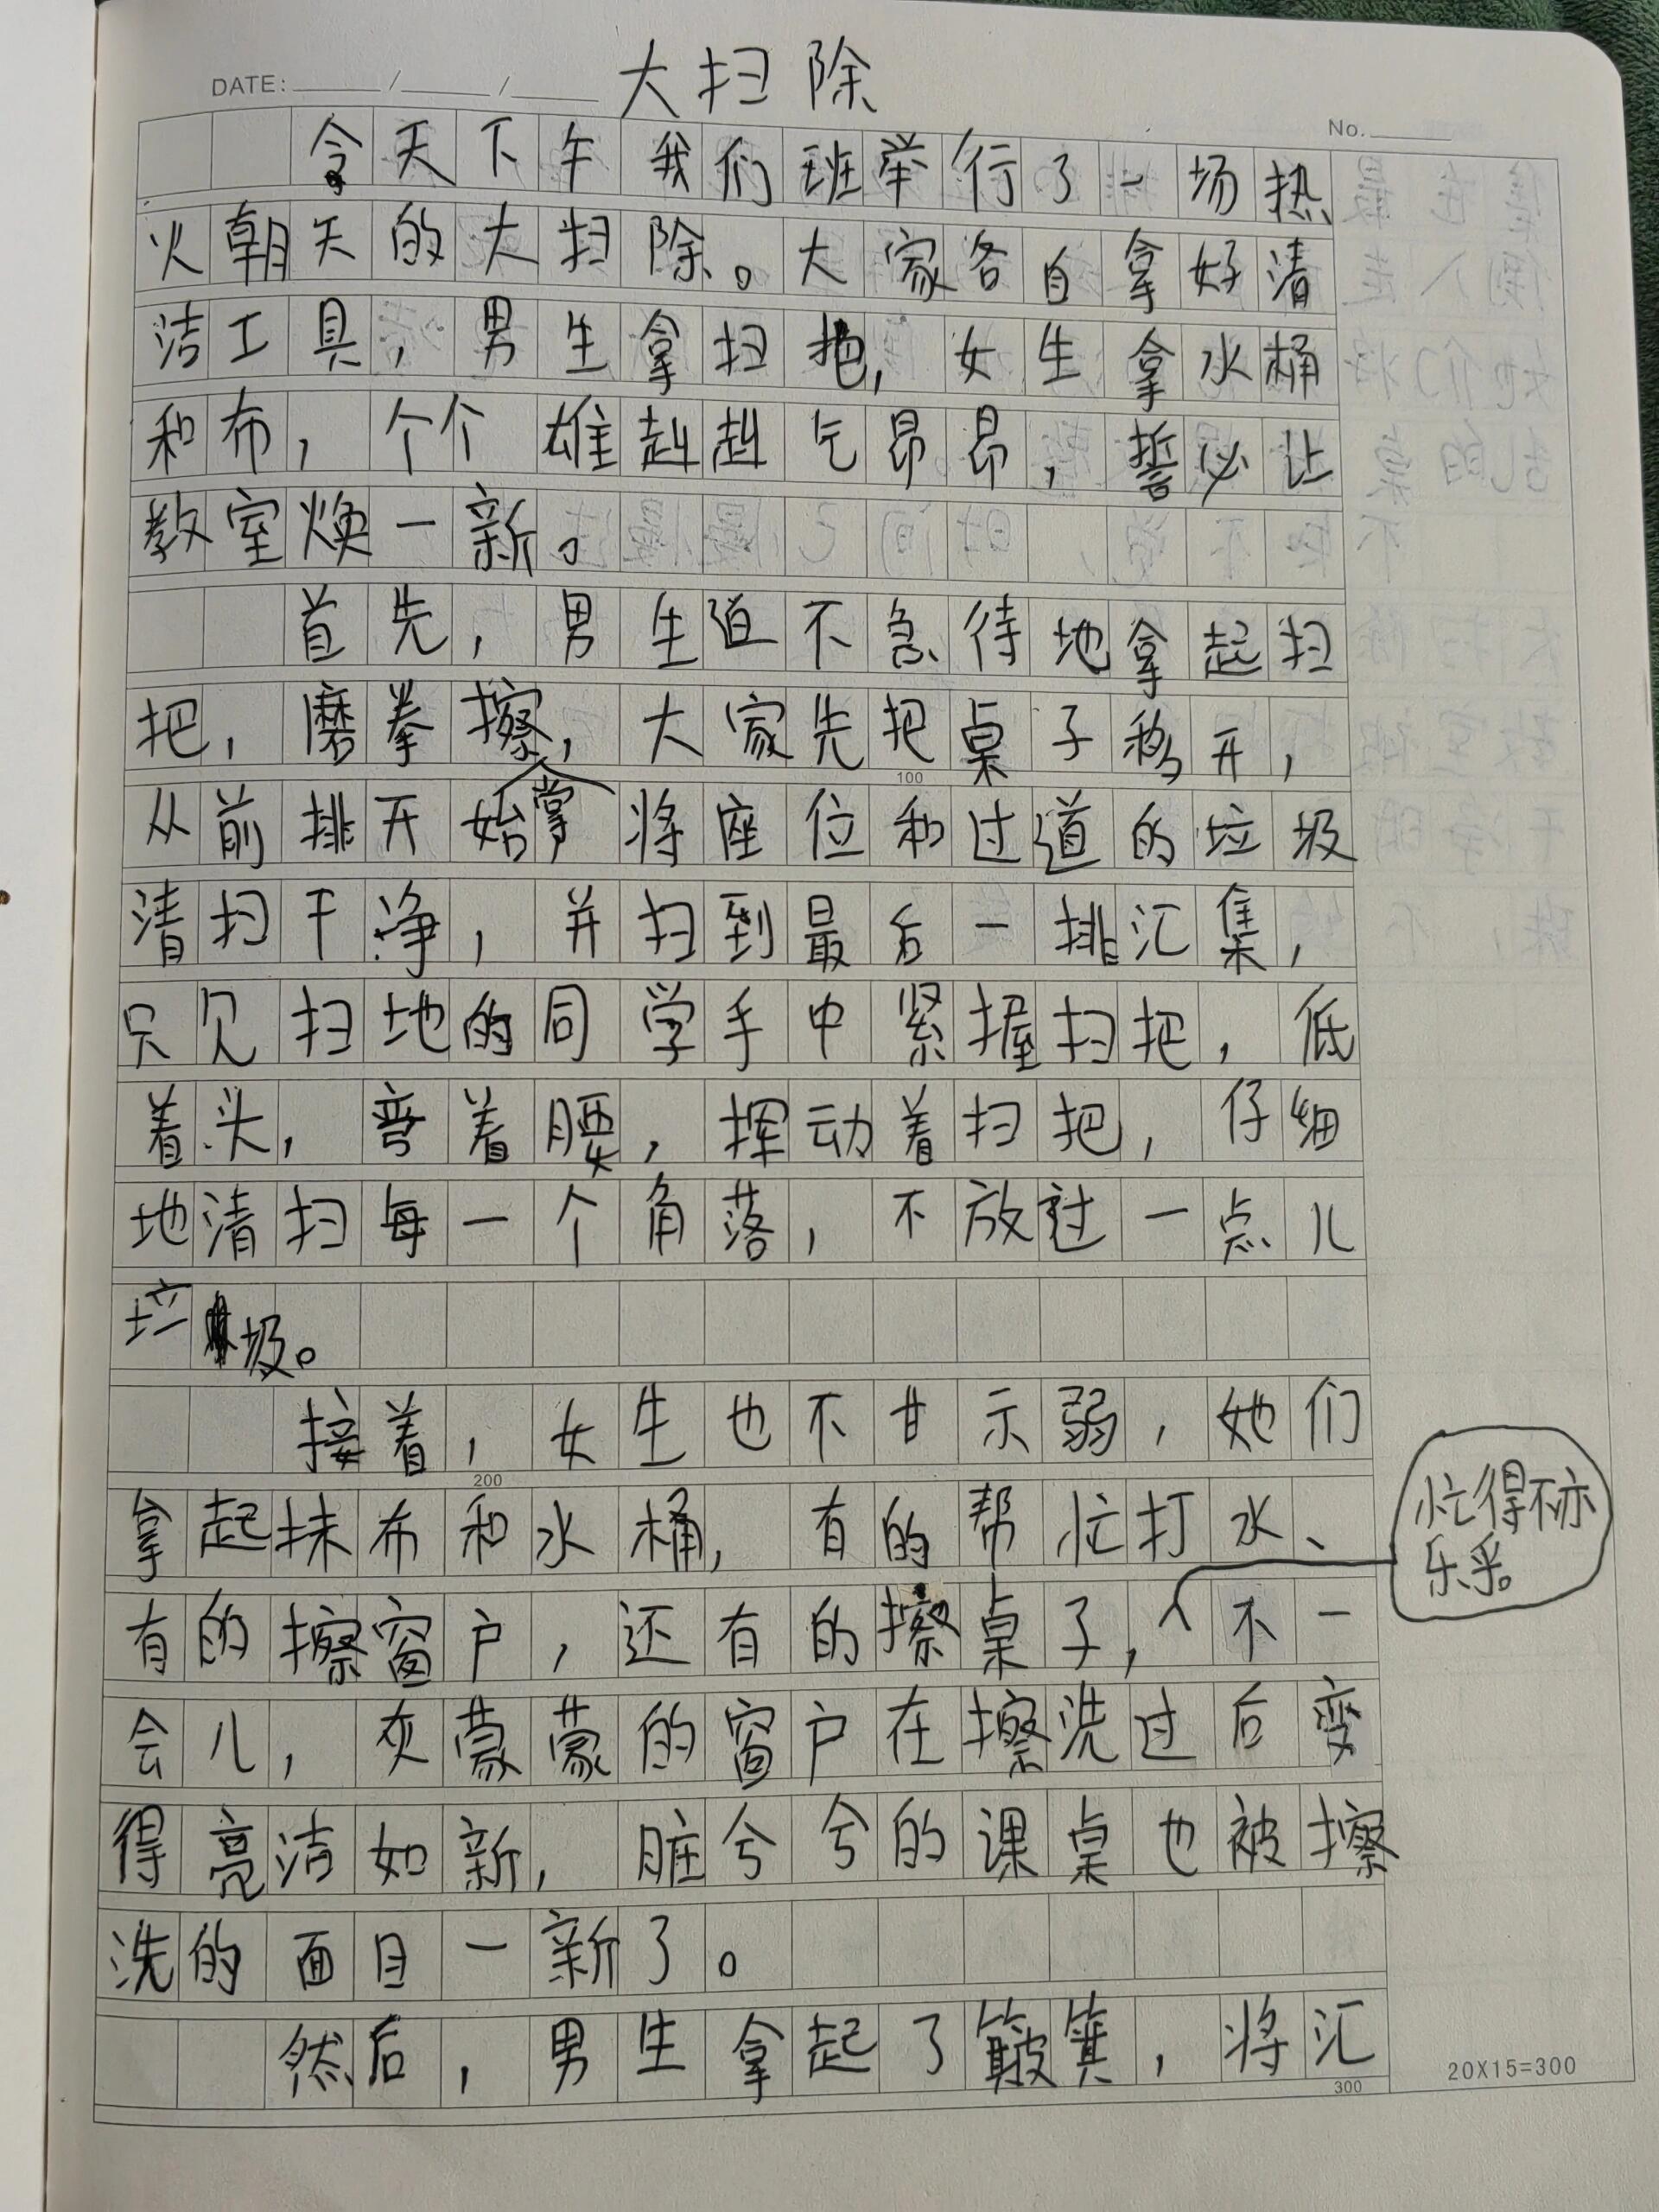 DATE: / /
大扫除
No.
今天下午我们班举行了一场热
火朝天的大扫除。大家各自拿好清
洁工具，男生拿扫把，女生拿水桶
和布，个个雄赳赳气昂昂，誓必让
教室焕一新。
首先，男生迫不急待地拿起扫
把，磨拳擦掌，大家先把桌子移开，
100
从前排开始将座位和过道的垃圾
清扫干净，并扫到最后一排汇集，
只见扫地的同学手中紧握扫把，低
着头，弯着腰，挥动着扫把，仔细
地清扫每一个角落，不放过一点儿
垃圾。
接着，女生也不甘示弱，她们
200
拿起抹布和水桶，有的帮忙打水、
有的擦窗户，还有的擦桌子，忙得不亦乐乎。不一
会儿，灰蒙蒙的窗户在擦洗过后变
得亮洁如新，脏兮兮的课桌也被擦
洗的面目一新了。
然后，男生拿起了簸箕，将汇
300
20X15=300